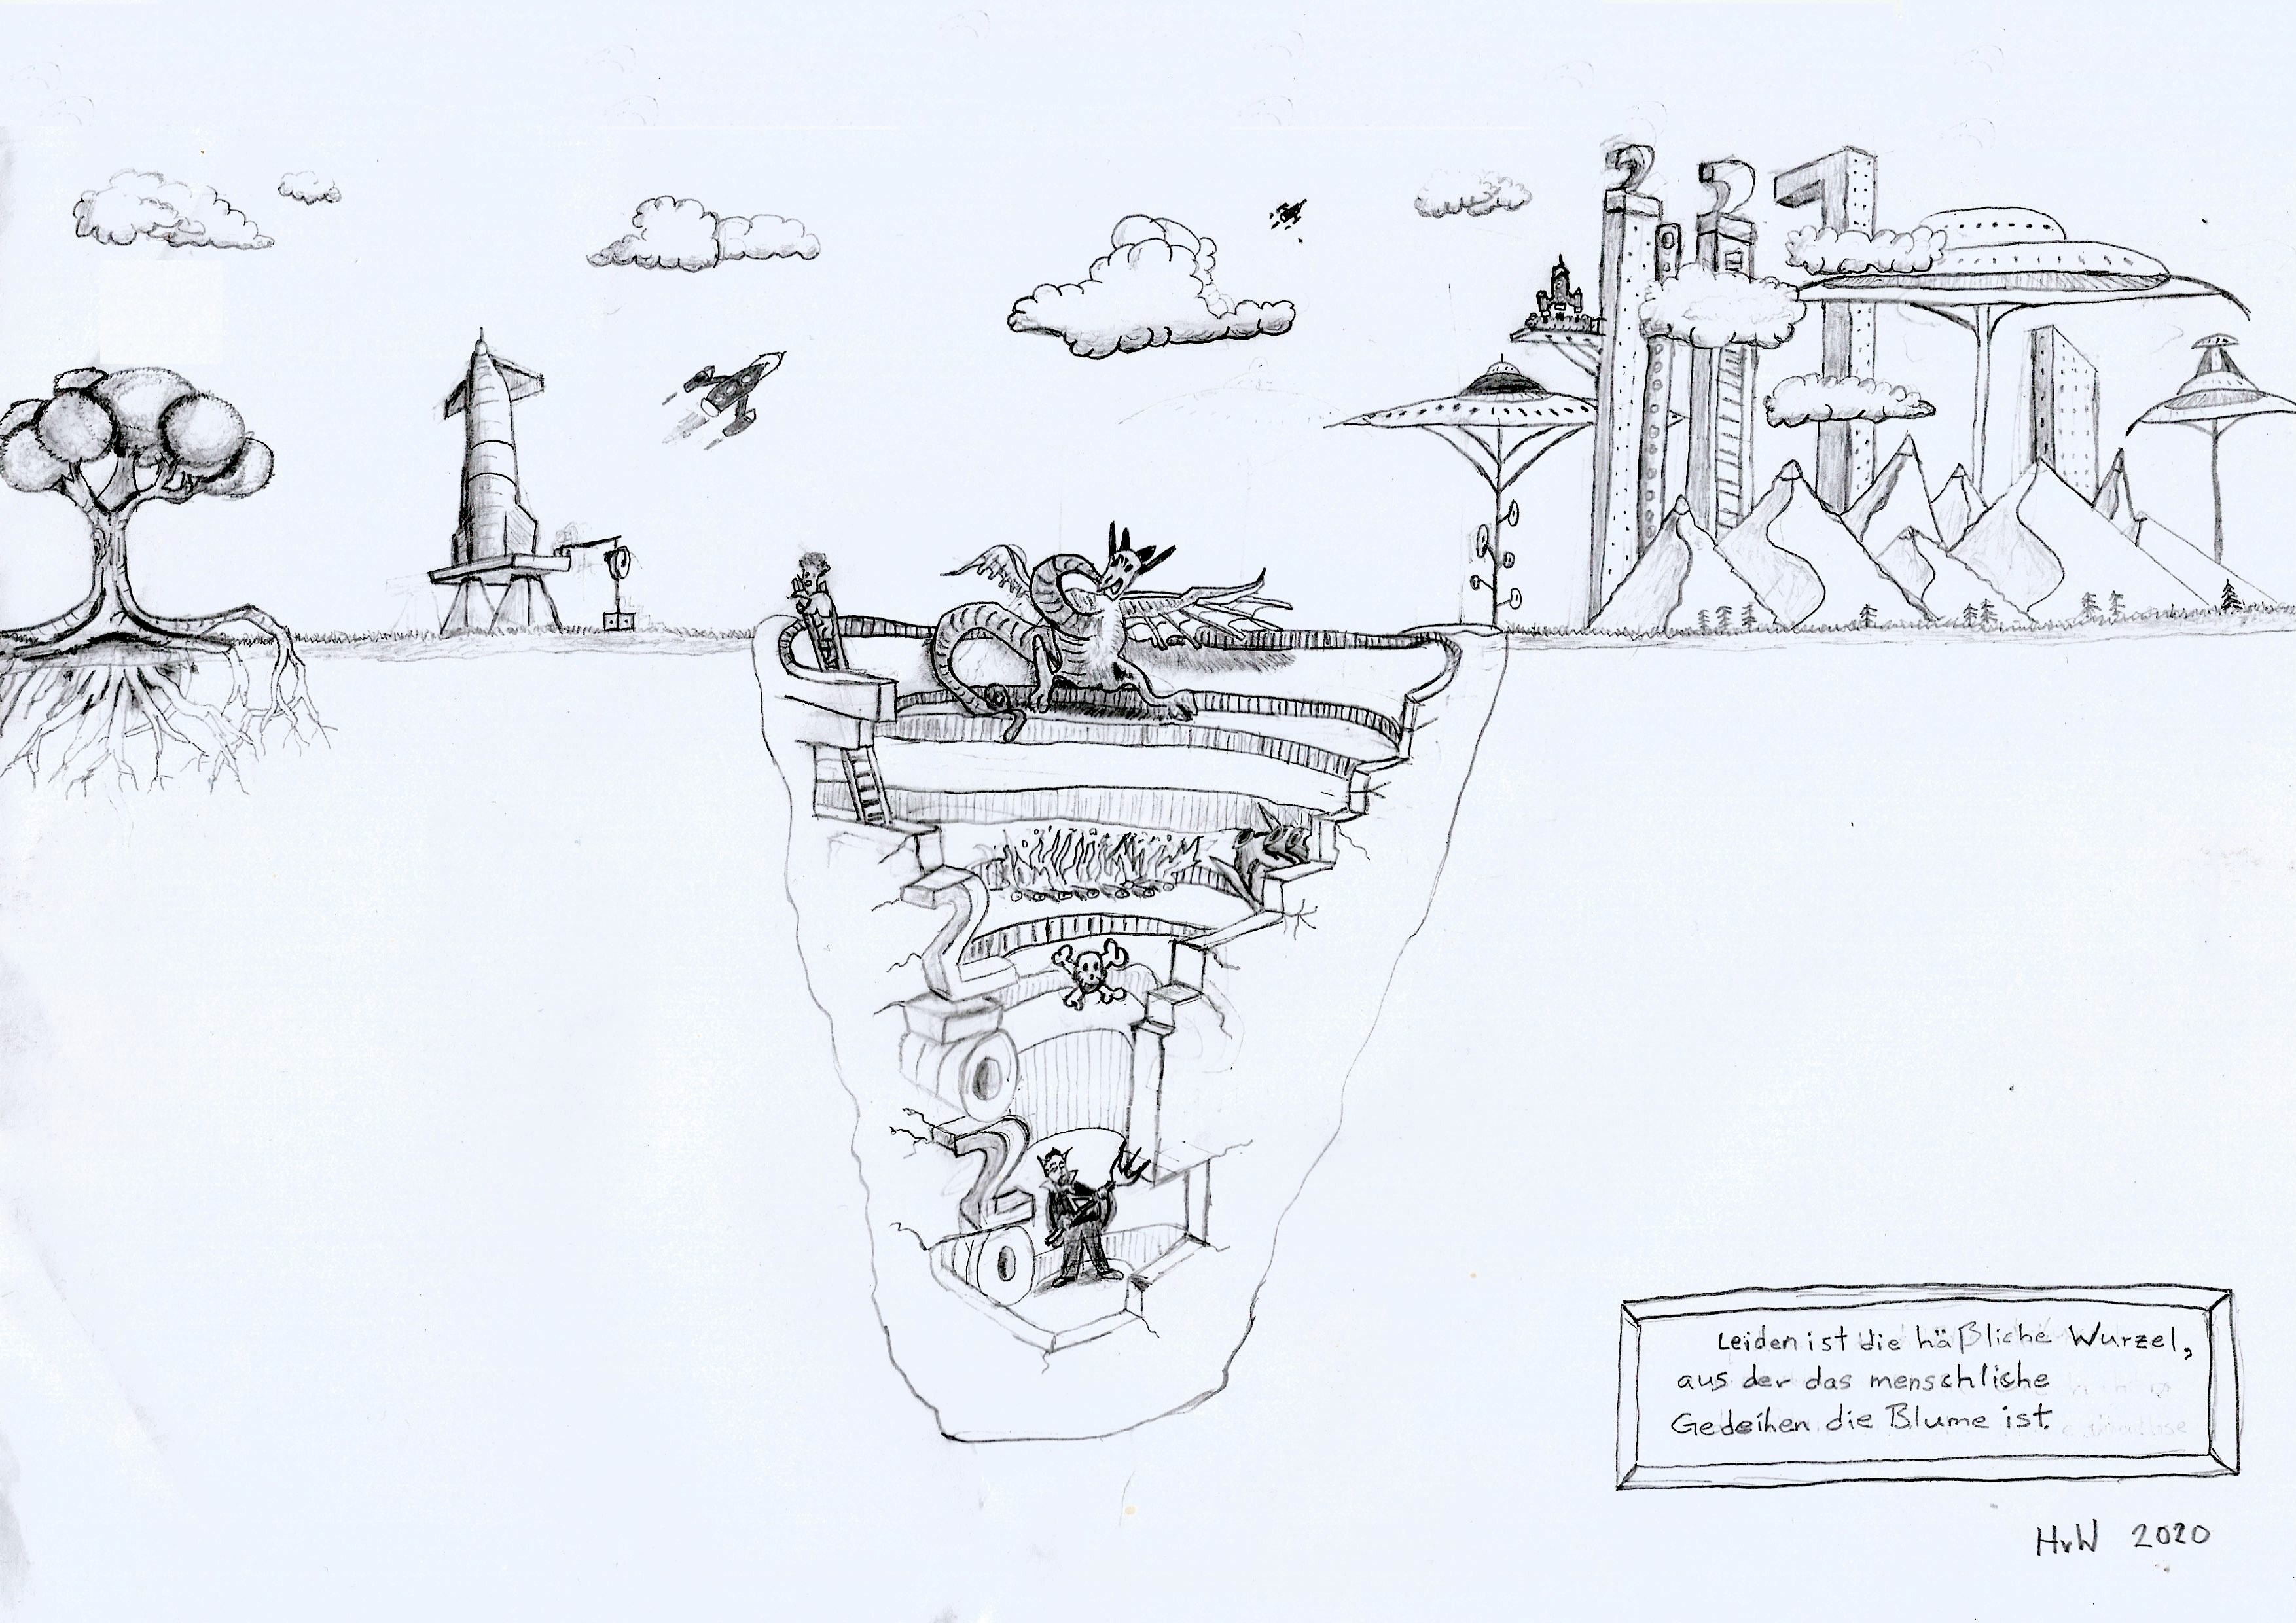 2021
2
0
2
0
Leiden ist die häßliche Wurzel,
aus der das menschliche
Gedeihen die Blume ist.
HvW 2020